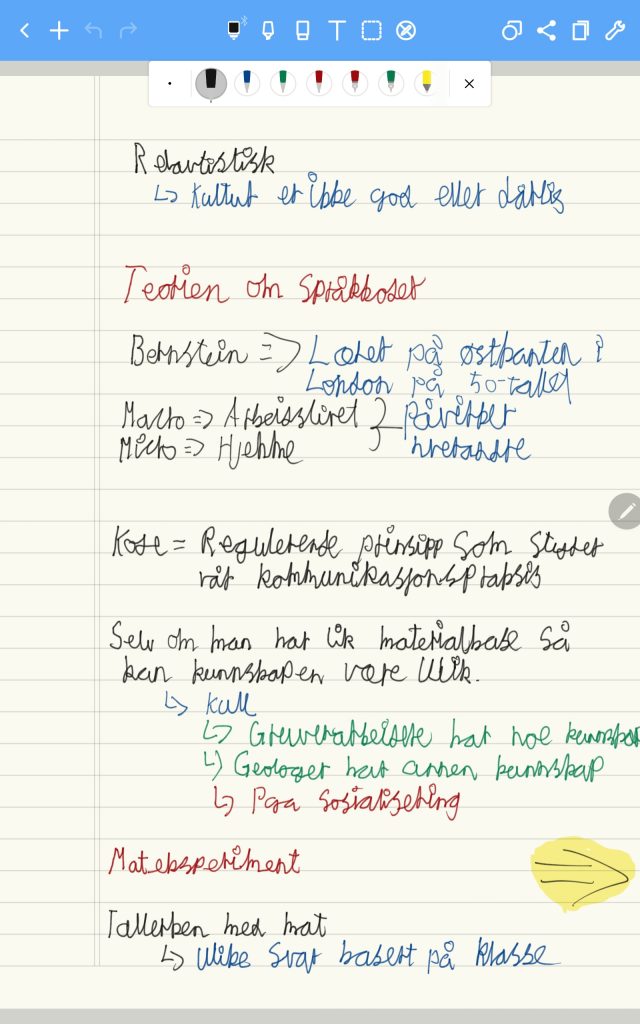 Relativistisk
↳ Kultur er ikke god eller dårlig
Teorien om språkkoder
Bernstein => Læret på østkanten i
London på 50-tallet
Macro => Arbeidslivet } påvirker
Micro => Hjemme hverandre
Kode = Regulerende prinsipp som styrer
vår kommunikasjonspraksis
Selv om man har lik materialbase så
kan kunnskapen være ulik.
↳ Kull
↳ Gruverarbeidere har noe kunnskap
↳ Geologer har annen kunnskap
↳ Pga sosialisering
Mateksperiment
Tallerken med mat
↳ Ulike svar basert på klasse